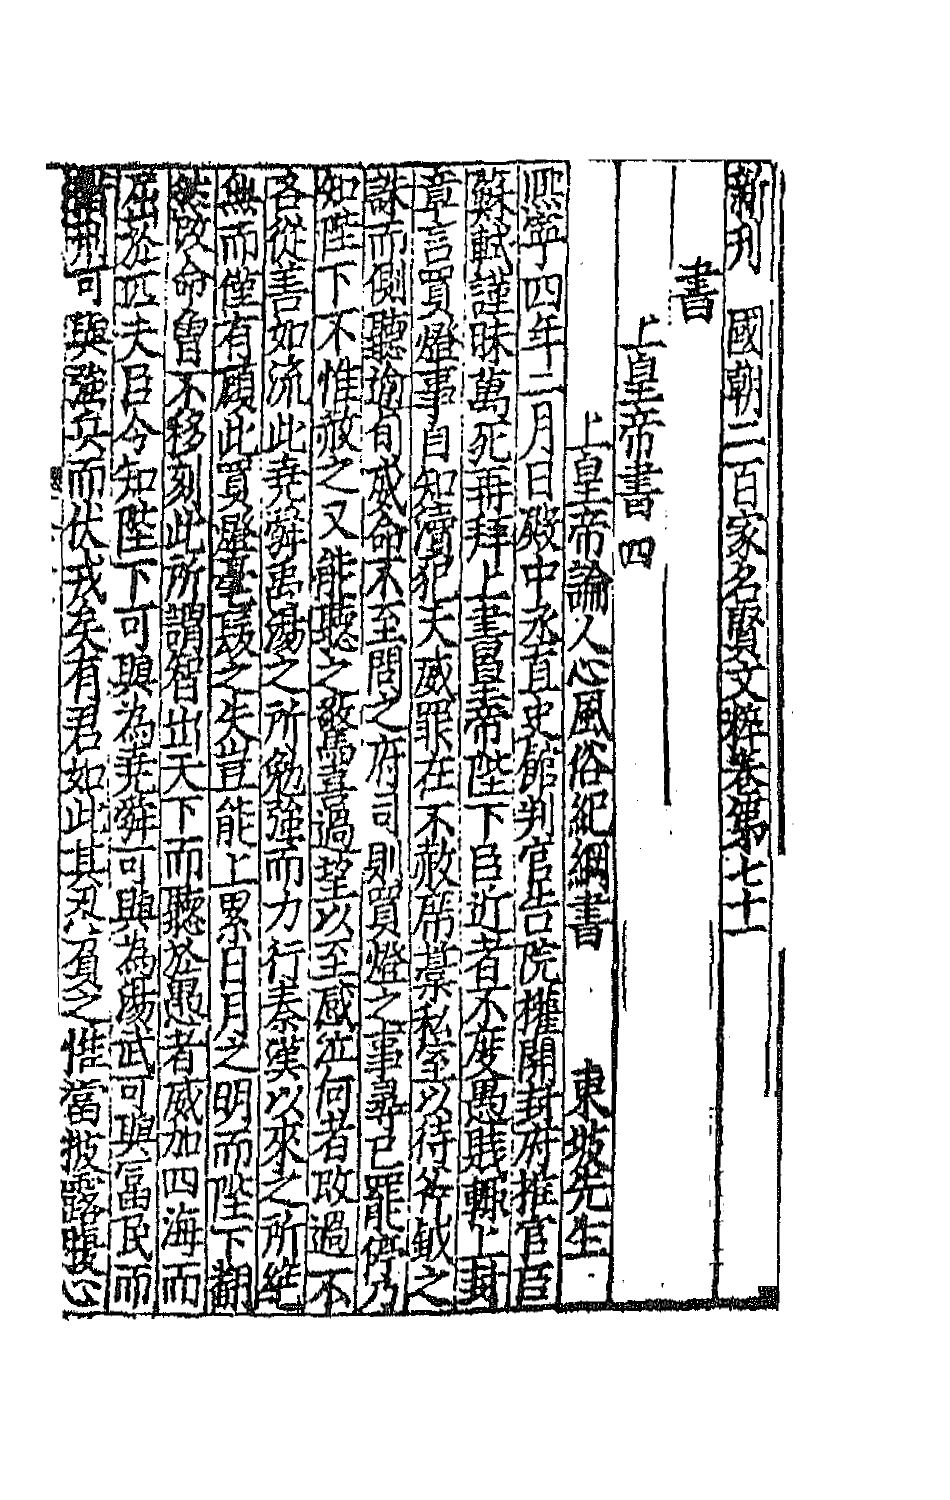 新刊　國朝二百家名賢文粹卷第七十
書
上皇帝書四
上皇帝論人心風俗紀綱書　東坡先生
熙寧四年二月日殿中丞直史館判官告院權開封府推官臣
蘇軾謹昧萬死再拜上書皇帝陛下臣近者不度愚賤輒上封
章言買燈事自知瀆犯天威罪在不赦席藁私室以待斧鉞之
誅而側聽逾旬威命不至問之府司則買燈之事尋已罷停乃
知陛下不惟赦之又能聽之驚喜過望以至感泣何者改過不
吝從善如流此堯舜禹湯之所勉強而力行秦漢以來之所絕
無而僅有顧此買燈毫髮之失豈能上累日月之明而陛下翻
然改命曾不移刻此所謂智出天下而聽於愚者威加四海而
屈於匹夫臣今知陛下可與為堯舜可與為湯武可與富民而
措刑可與強兵而伏戎矣有君如此其忍負之惟當披露腹心